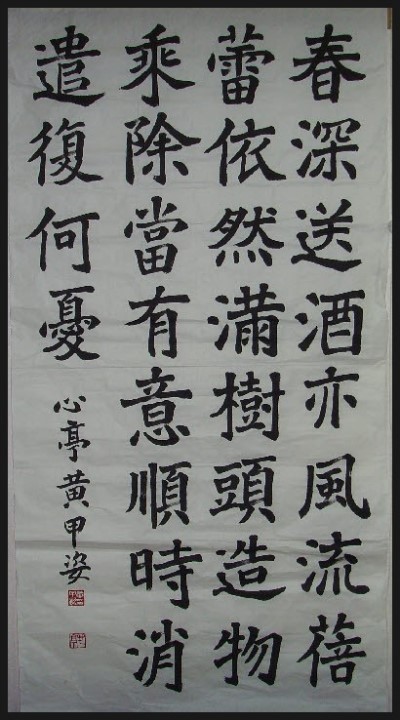 春深送酒亦風流蓓
蕾依然滿樹頭造物
乘除當有意順時消
遣復何憂
心亭黃甲姿